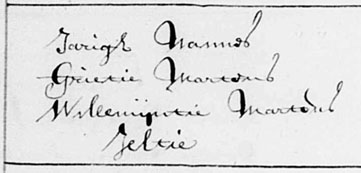 Jarigh Nannes
Grietie Martens
Willemijntie Martens
Jeltie